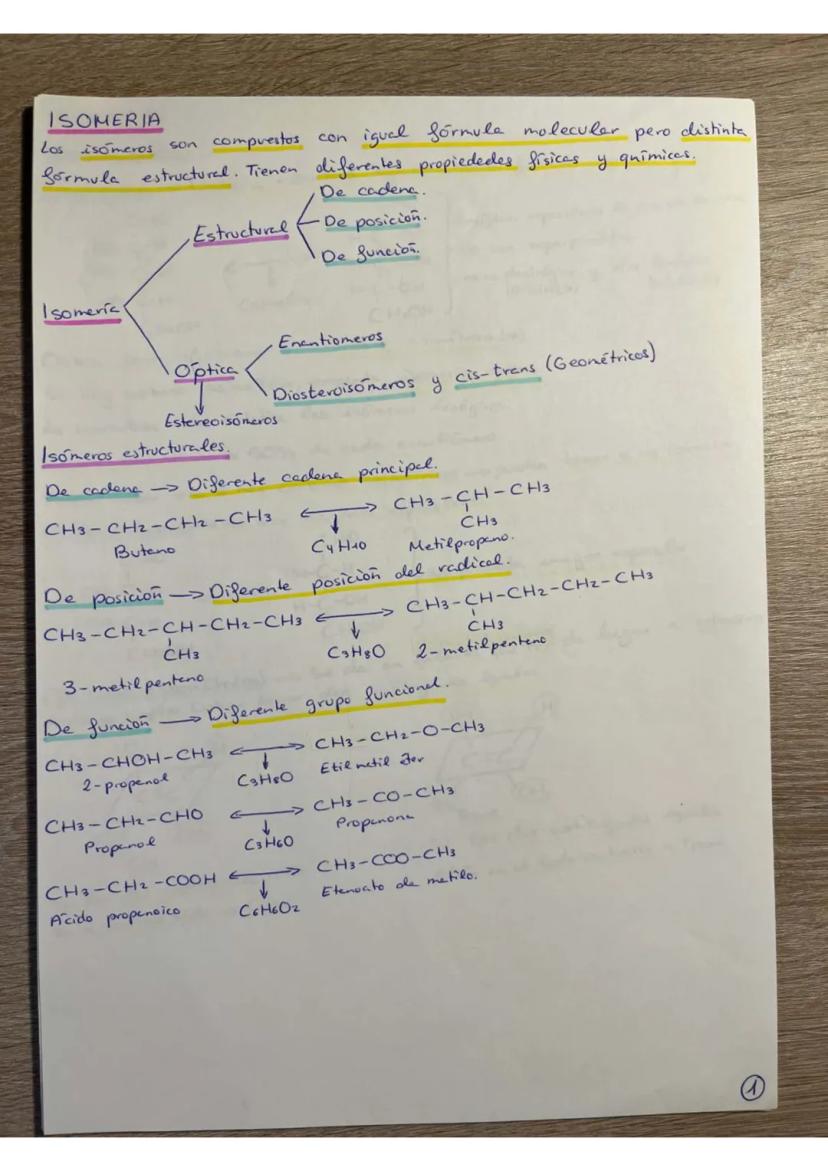 ISOMERIA
Los isómeros son compuestos con igual fórmula molecular pero distinta
fórmula estructural. Tienen diferentes propiededes físicas y químicas.
De cadena.
Estructural
De posición.
De función.
Isomería
Enantiomeros
Óptica
Diosteroisómeros y cis-trans (Geométricos)
Estereoisómeros
Isómeros estructurales.
De cadena → Diferente cadena principal.
CH3-CH2-CH2-CH3 ⟷ CH3-CH-CH3
CH3
Butano C4H10 Metilpropano.
De posición → Diferente posición del radical.
CH3-CH2-CH-CH2-CH3 ⟷ CH3-CH-CH2-CH2-CH3
CH3 CH3
C3H8O 2-metilpentano
3-metilpentano
De función → Diferente grupo funcional.
CH3-CHOH-CH3 ⟷ CH3-CH2-O-CH3
2-propanol C3H8O Etil metil
CH3-CH2-CHO ⟷ CH3-CO-CH3
Propanal C3H6O Propanona
CH3-CH2-COOH ⟷ CH3-COO-CH3
Ácido propanoico C6H6O2 Etanoato de metilo.
1